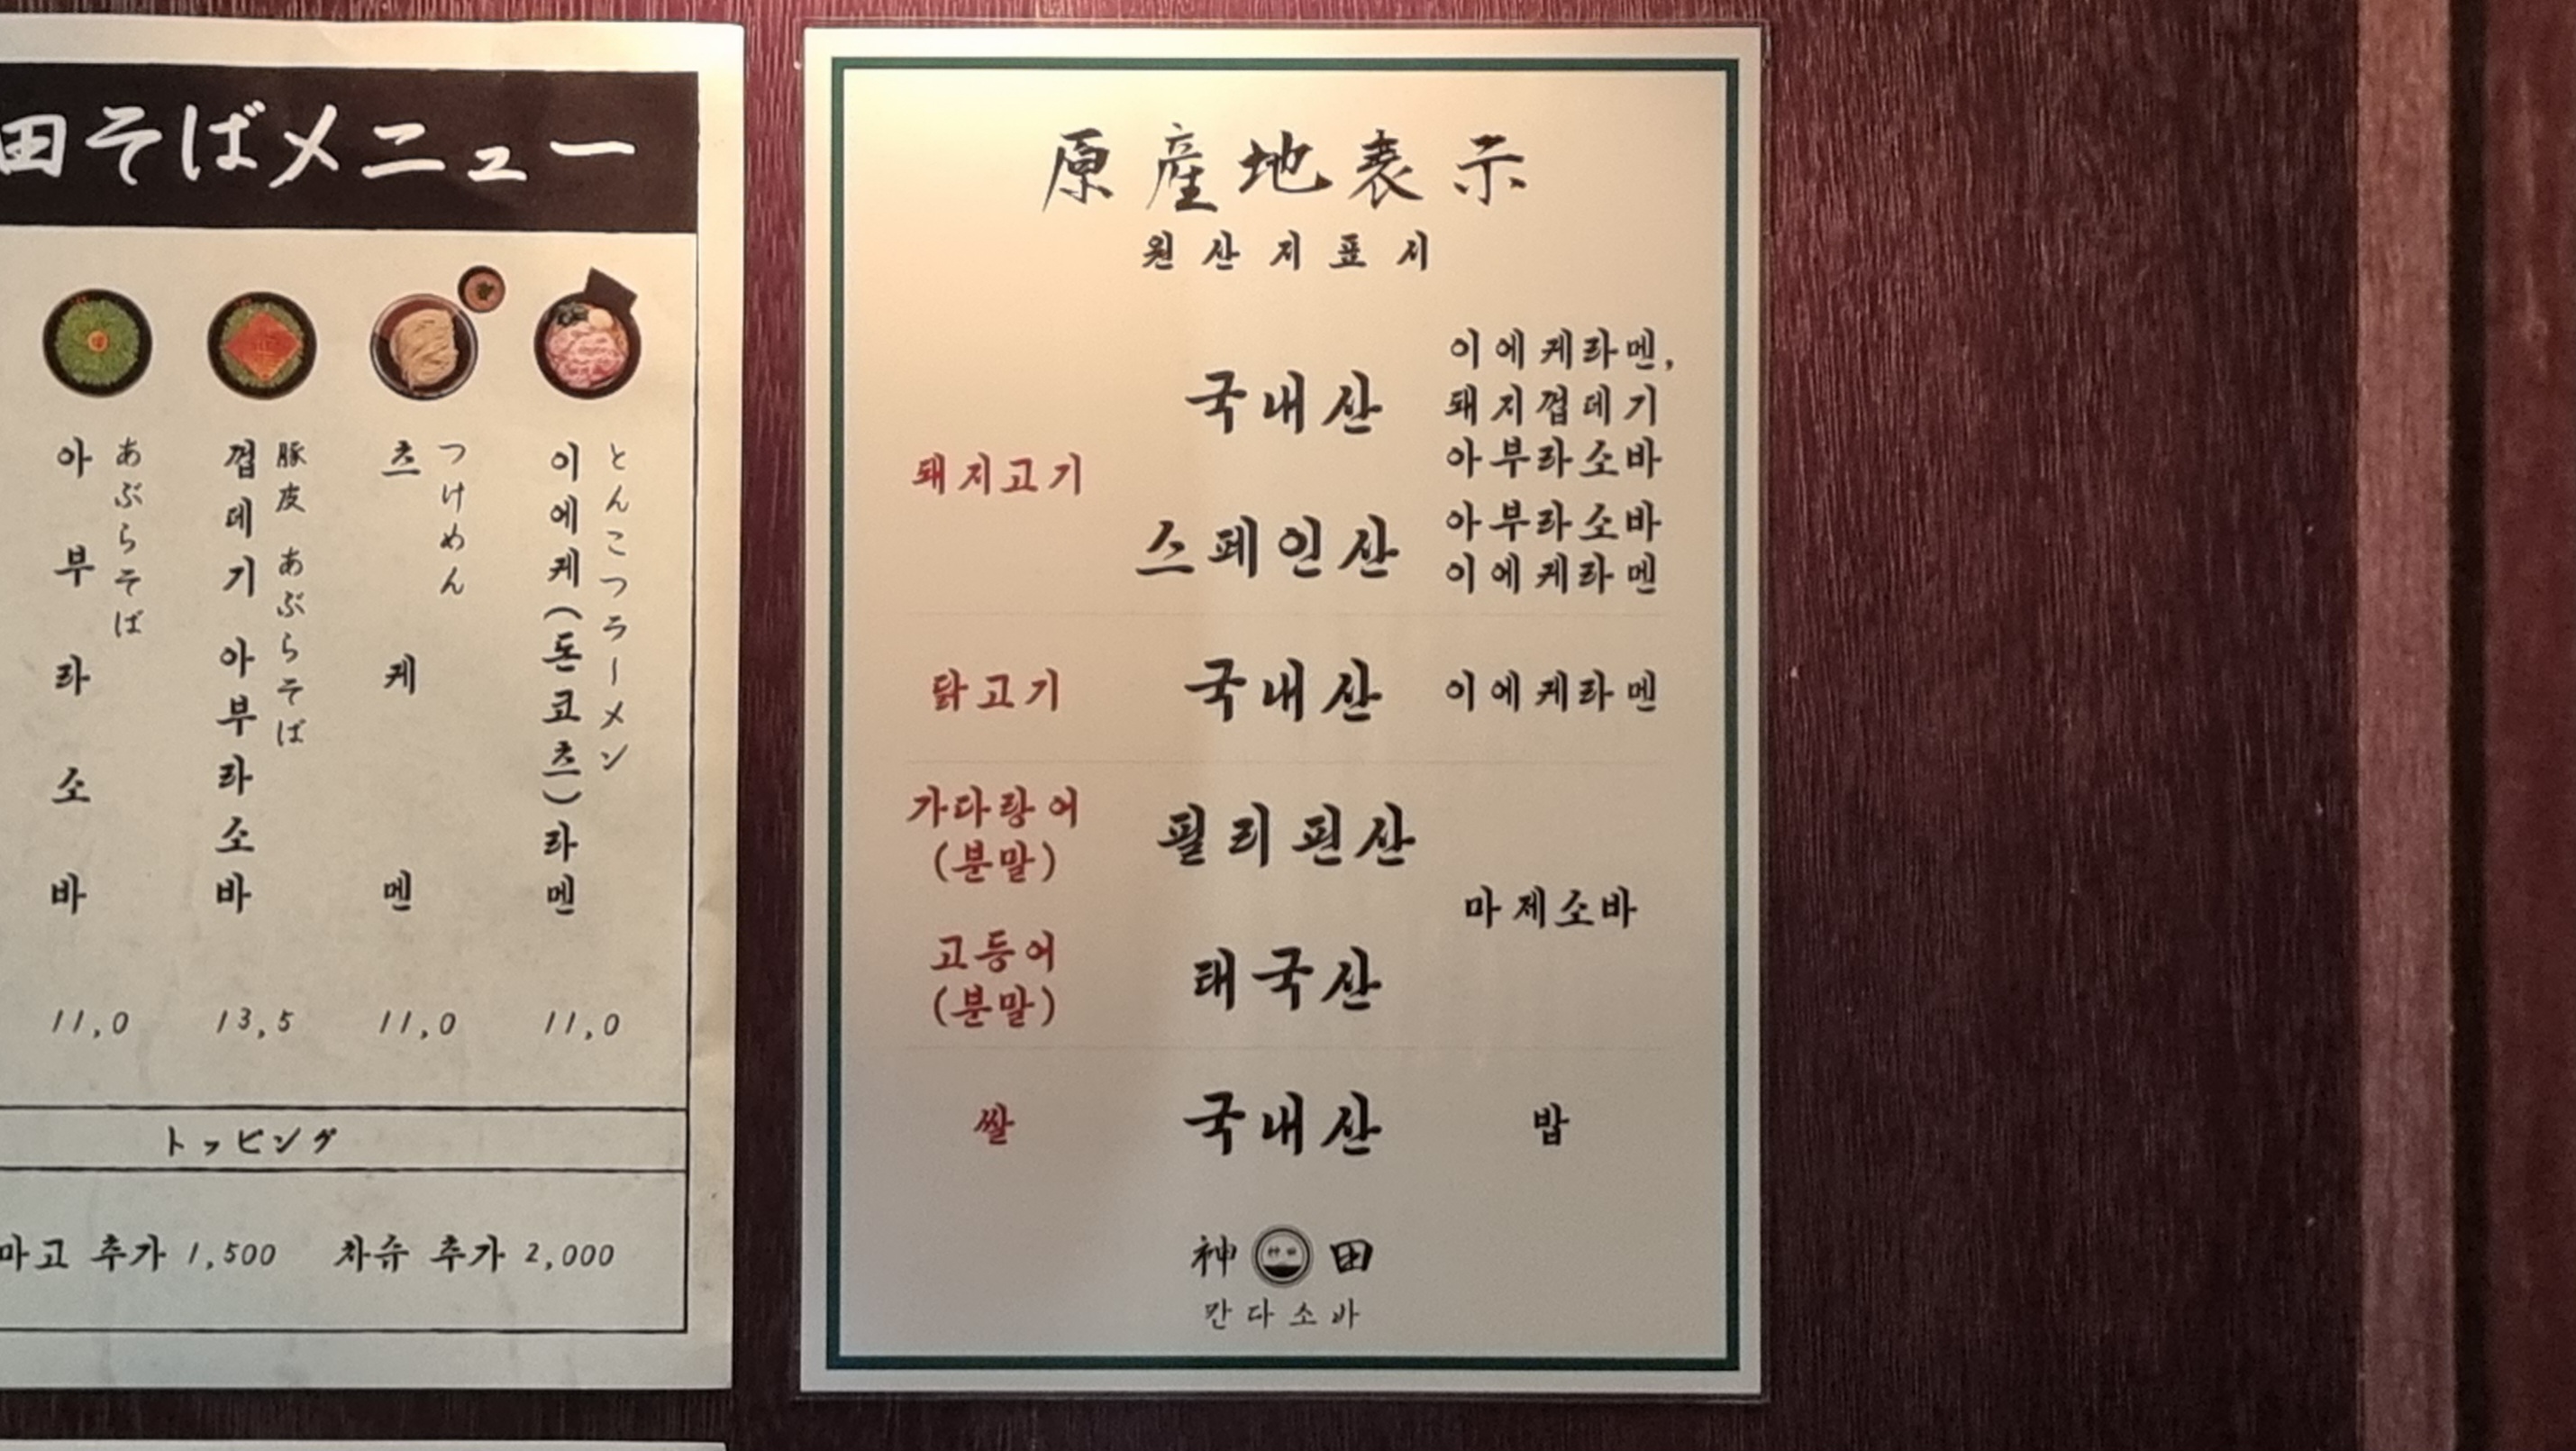 田そばメニュー
아부라소바
あぶらそば
껍데기 아부라소바
豚皮 あぶらそば
츠케멘
つけめん
이에케(돈코츠)라멘
とんこつラーメン
11,0
13,5
11,0
11,0
トッピング
마고 추가 1,500
차슈 추가 2,000
原産地表示
원산지표시
돼지고기
국내산
이에케라멘,
돼지껍데기
아부라소바
스페인산
아부라소바
이에케라멘
닭고기
국내산
이에케라멘
가다랑어
(분말)
필리핀산
고등어
(분말)
태국산
마제소바
쌀
국내산
밥
神田
칸다소바